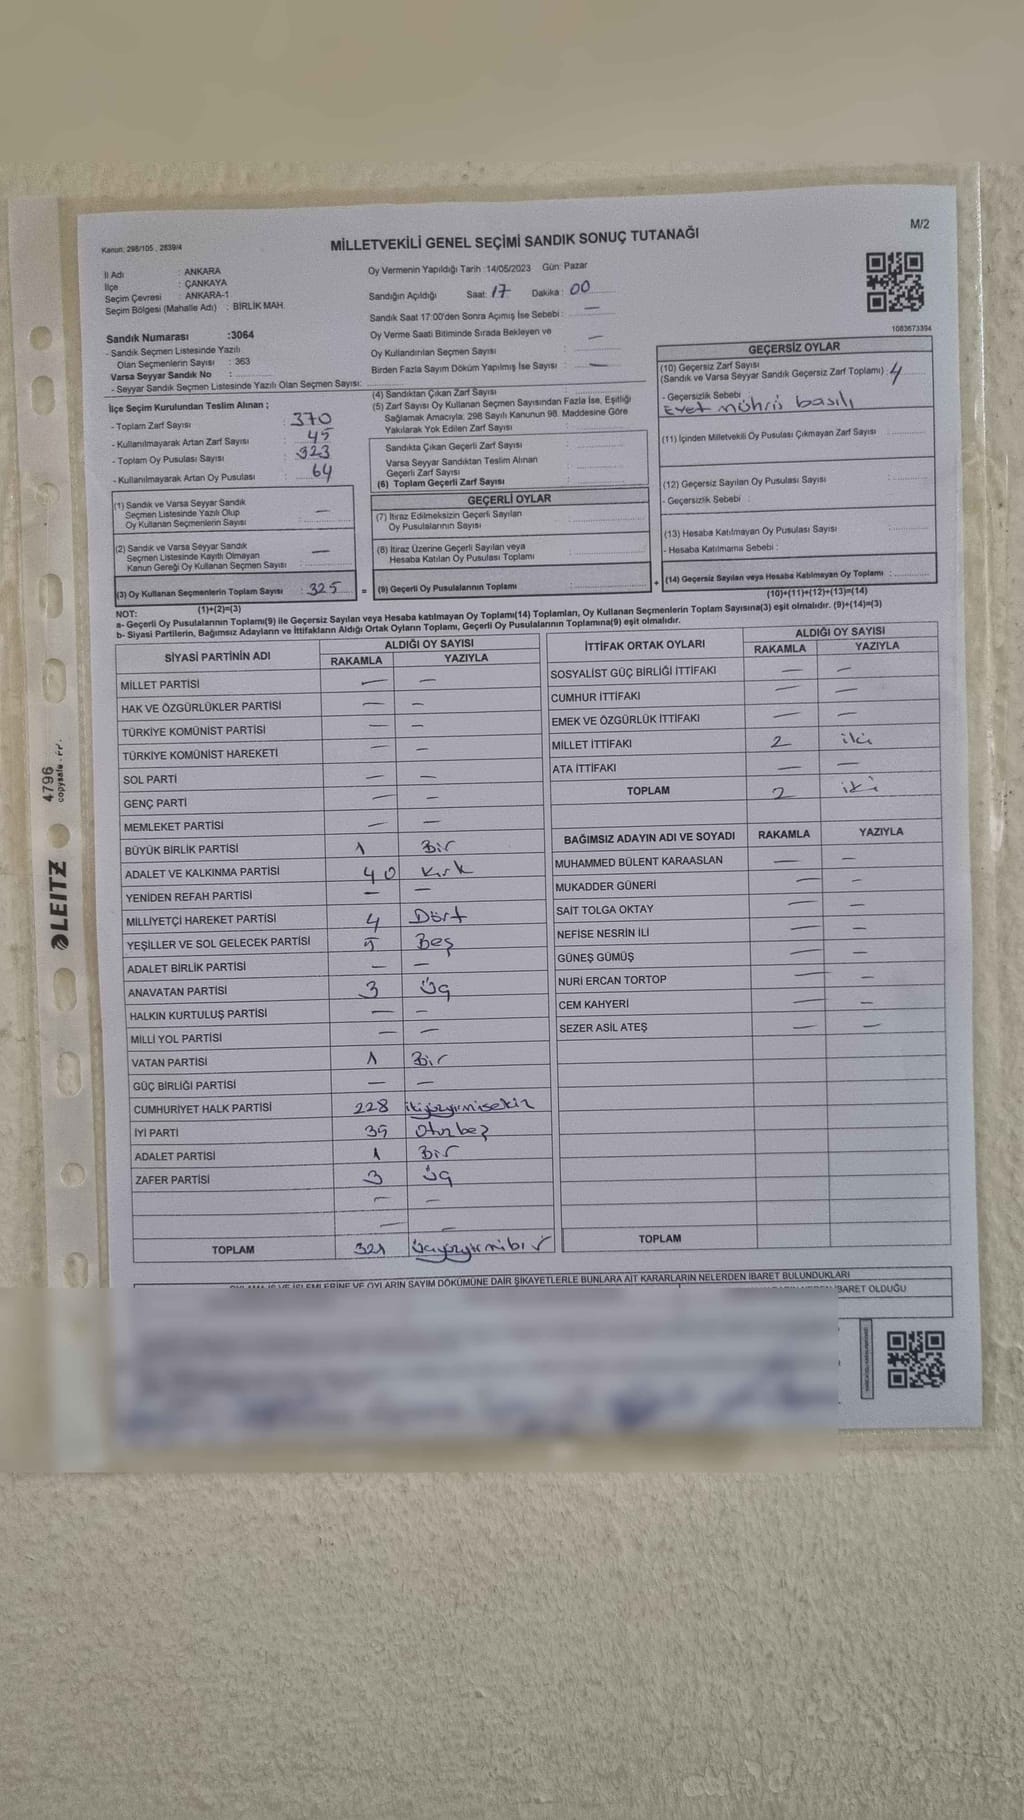 M/2
Kanun: 298/105 , 2839/4
MİLLETVEKİLİ GENEL SEÇİMİ SANDIK SONUÇ TUTANAĞI
İl Adı : ANKARA
İlçe : ÇANKAYA
Seçim Çevresi : ANKARA-1
Seçim Bölgesi (Mahalle Adı) : BİRLİK MAH.
Sandık Numarası :3064
- Sandık Seçmen Listesinde Yazılı
Olan Seçmenlerin Sayısı : 363
Varsa Seyyar Sandık No :
- Seyyar Sandık Seçmen Listesinde Yazılı Olan Seçmen Sayısı:
Oy Vermenin Yapıldığı Tarih :14/05/2023 Gün: Pazar
Sandığın Açıldığı Saat: 17 Dakika : 00
Sandık Saat 17:00'den Sonra Açımış İse Sebebi : —
Oy Verme Saati Bitiminde Sırada Bekleyen ve
Oy Kullandırılan Seçmen Sayısı : —
Birden Fazla Sayım Döküm Yapılmış İse Sayısı : —
1083673394
İlçe Seçim Kurulundan Teslim Alınan ;
- Toplam Zarf Sayısı : 370
- Kullanılmayarak Artan Zarf Sayısı : 45
- Toplam Oy Pusulası Sayısı : 323
- Kullanılmayarak Artan Oy Pusulası : 64
(1) Sandık ve Varsa Seyyar Sandık
Seçmen Listesinde Yazılı Olup
Oy Kullanan Seçmenlerin Sayısı : —
(2) Sandık ve Varsa Seyyar Sandık
Seçmen Listesinde Kayıtlı Olmayan
Kanun Gereği Oy Kullanan Seçmen Sayısı : —
(3) Oy Kullanan Seçmenlerin Toplam Sayısı : 325 =
(4) Sandıktan Çıkan Zarf Sayısı :
(5) Zarf Sayısı Oy Kullanan Seçmen Sayısından Fazla İse, Eşitliği
Sağlamak Amacıyla, 298 Sayılı Kanunun 98. Maddesine Göre
Yakılarak Yok Edilen Zarf Sayısı :
Sandıkta Çıkan Geçerli Zarf Sayısı :
Varsa Seyyar Sandıktan Teslim Alınan
Geçerli Zarf Sayısı :
(6) Toplam Geçerli Zarf Sayısı :
GEÇERLİ OYLAR
(7) İtiraz Edilmeksizin Geçerli Sayılan
Oy Pusulalarının Sayısı :
(8) İtiraz Üzerine Geçerli Sayılan veya
Hesaba Katılan Oy Pusulası Toplamı :
(9) Geçerli Oy Pusulalarının Toplamı : +
GEÇERSİZ OYLAR
(10) Geçersiz Zarf Sayısı
(Sandık ve Varsa Seyyar Sandık Geçersiz Zarf Toplamı) : 4
- Geçersizlik Sebebi :
Evet mührü basılı
(11) İçinden Milletvekili Oy Pusulası Çıkmayan Zarf Sayısı :
(12) Geçersiz Sayılan Oy Pusulası Sayısı :
- Geçersizlik Sebebi :
(13) Hesaba Katılmayan Oy Pusulası Sayısı :
- Hesaba Katılmama Sebebi :
(14) Geçersiz Sayılan veya Hesaba Katılmayan Oy Toplamı :
(10)+(11)+(12)+(13)=(14)
NOT: (1)+(2)=(3)
a- Geçerli Oy Pusulalarının Toplamı(9) ile Geçersiz Sayılan veya Hesaba katılmayan Oy Toplamı(14) Toplamları, Oy Kullanan Seçmenlerin Toplam Sayısına(3) eşit olmalıdır. (9)+(14)=(3)
b- Siyasi Partilerin, Bağımsız Adayların ve İttifakların Aldığı Ortak Oyların Toplamı, Geçerli Oy Pusulalarının Toplamına(9) eşit olmalıdır.
SİYASİ PARTİNİN ADI ALDIĞI OY SAYISI
RAKAMLA YAZIYLA
MİLLET PARTİSİ — —
HAK VE ÖZGÜRLÜKLER PARTİSİ — —
TÜRKİYE KOMÜNİST PARTİSİ — —
TÜRKİYE KOMÜNİST HAREKETİ — —
SOL PARTİ — —
GENÇ PARTİ — —
MEMLEKET PARTİSİ — —
BÜYÜK BİRLİK PARTİSİ 1 Bir
ADALET VE KALKINMA PARTİSİ 40 Kırk
YENİDEN REFAH PARTİSİ — —
MİLLİYETÇİ HAREKET PARTİSİ 4 Dört
YEŞİLLER VE SOL GELECEK PARTİSİ 5 Beş
ADALET BİRLİK PARTİSİ — —
ANAVATAN PARTİSİ 3 Üç
HALKIN KURTULUŞ PARTİSİ — —
MİLLİ YOL PARTİSİ — —
VATAN PARTİSİ 1 Bir
GÜÇ BİRLİĞİ PARTİSİ — —
CUMHURİYET HALK PARTİSİ 228 ikiyüzyirmisekiz
İYİ PARTİ 35 Otuzbeş
ADALET PARTİSİ 1 Bir
ZAFER PARTİSİ 3 Üç
— —
— —
TOPLAM 321 Üçyüzyirmibir
İTTİFAK ORTAK OYLARI ALDIĞI OY SAYISI
RAKAMLA YAZIYLA
SOSYALİST GÜÇ BİRLİĞİ İTTİFAKI — —
CUMHUR İTTİFAKI — —
EMEK VE ÖZGÜRLÜK İTTİFAKI — —
MİLLET İTTİFAKI 2 iki
ATA İTTİFAKI — —
TOPLAM 2 iki
BAĞIMSIZ ADAYIN ADI VE SOYADI RAKAMLA YAZIYLA
MUHAMMED BÜLENT KARAASLAN — —
MUKADDER GÜNERİ — —
SAİT TOLGA OKTAY — —
NEFİSE NESRİN İLİ — —
GÜNEŞ GÜMÜŞ — —
NURİ ERCAN TORTOP — —
CEM KAHYERİ — —
SEZER ASİL ATEŞ — —
TOPLAM
OYLAMA İŞ VE İŞLEMLERİNE VE OYLARIN SAYIM DÖKÜMÜNE DAİR ŞİKAYETLERLE BUNLARA AİT KARARLARIN NELERDEN İBARET BULUNDUKLARI
İBARET OLDUĞU
LEITZ
4796
copysafe